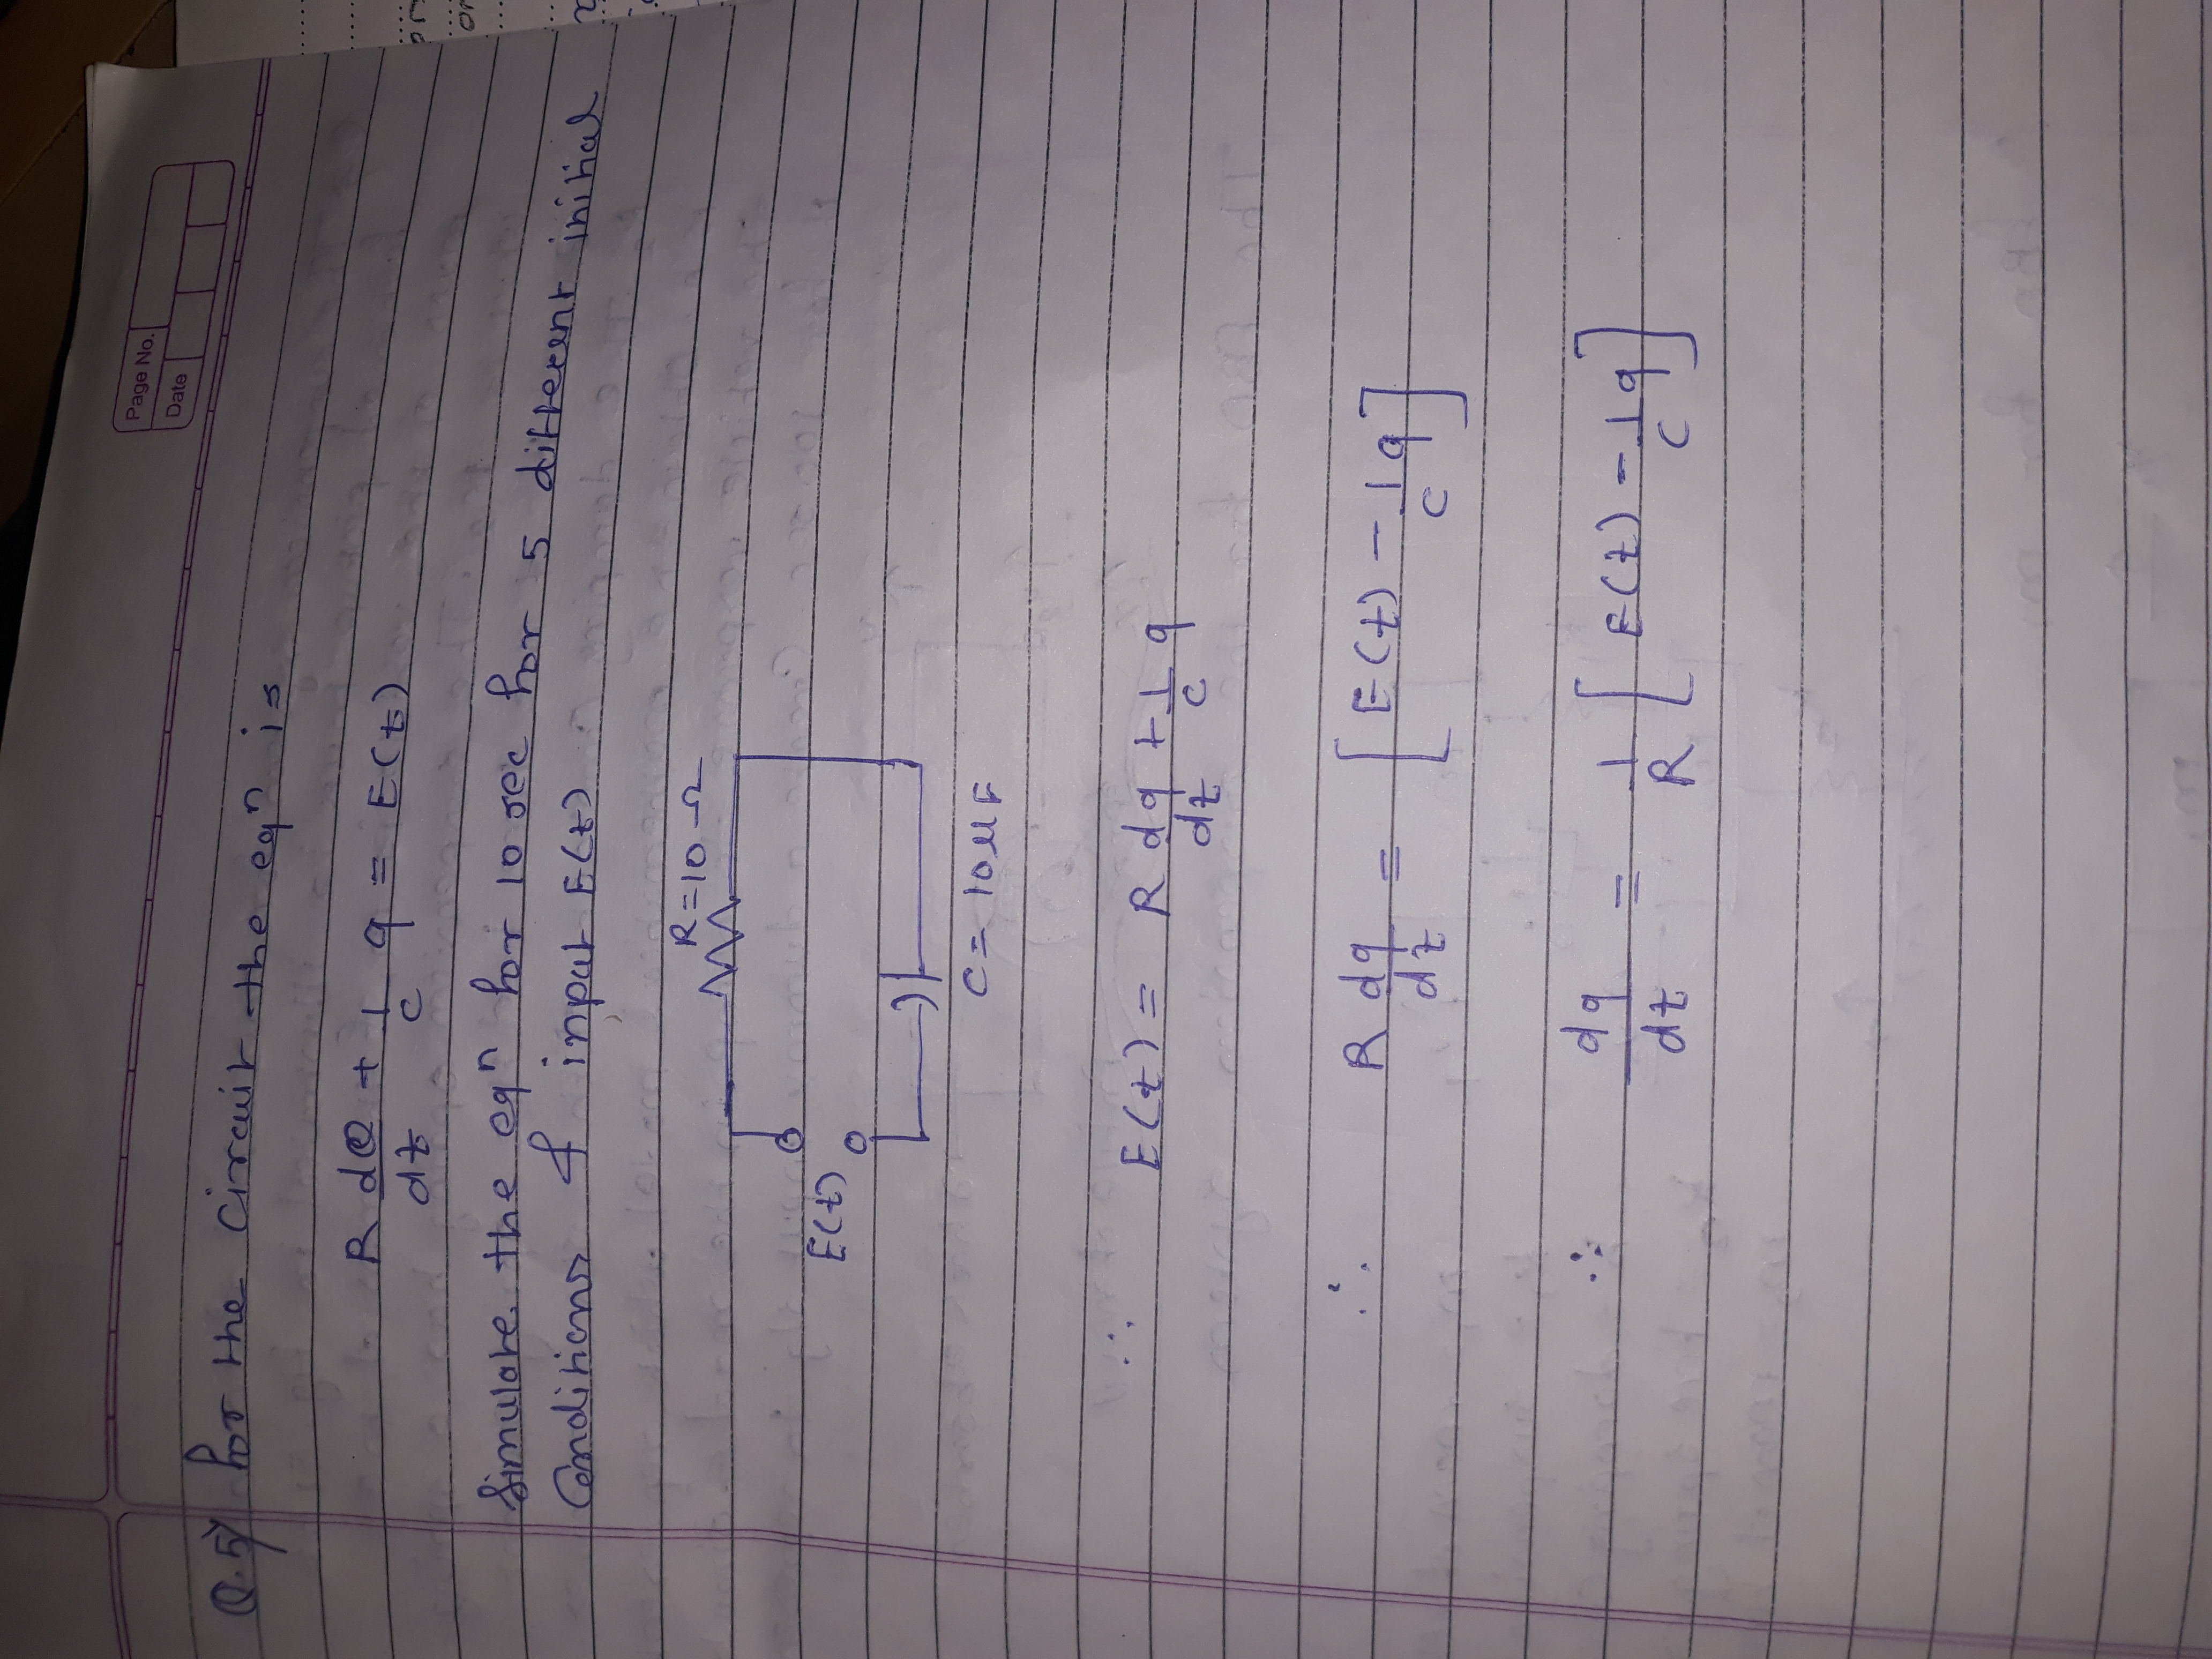 Page No.
Date
Q.5) For the circuit the eqⁿ is
R dQ/dt + 1/C q = E(t)
Simulate the eqⁿ for 10 sec for 5 different initial
Conditions & input E(t)
R=10 Ω
E(t)
C = 10 μF
∴ E(t) = R dq/dt + 1/C q
∴ R dq/dt = [E(t) - 1/C q]
∴ dq/dt = 1/R [E(t) - 1/C q]